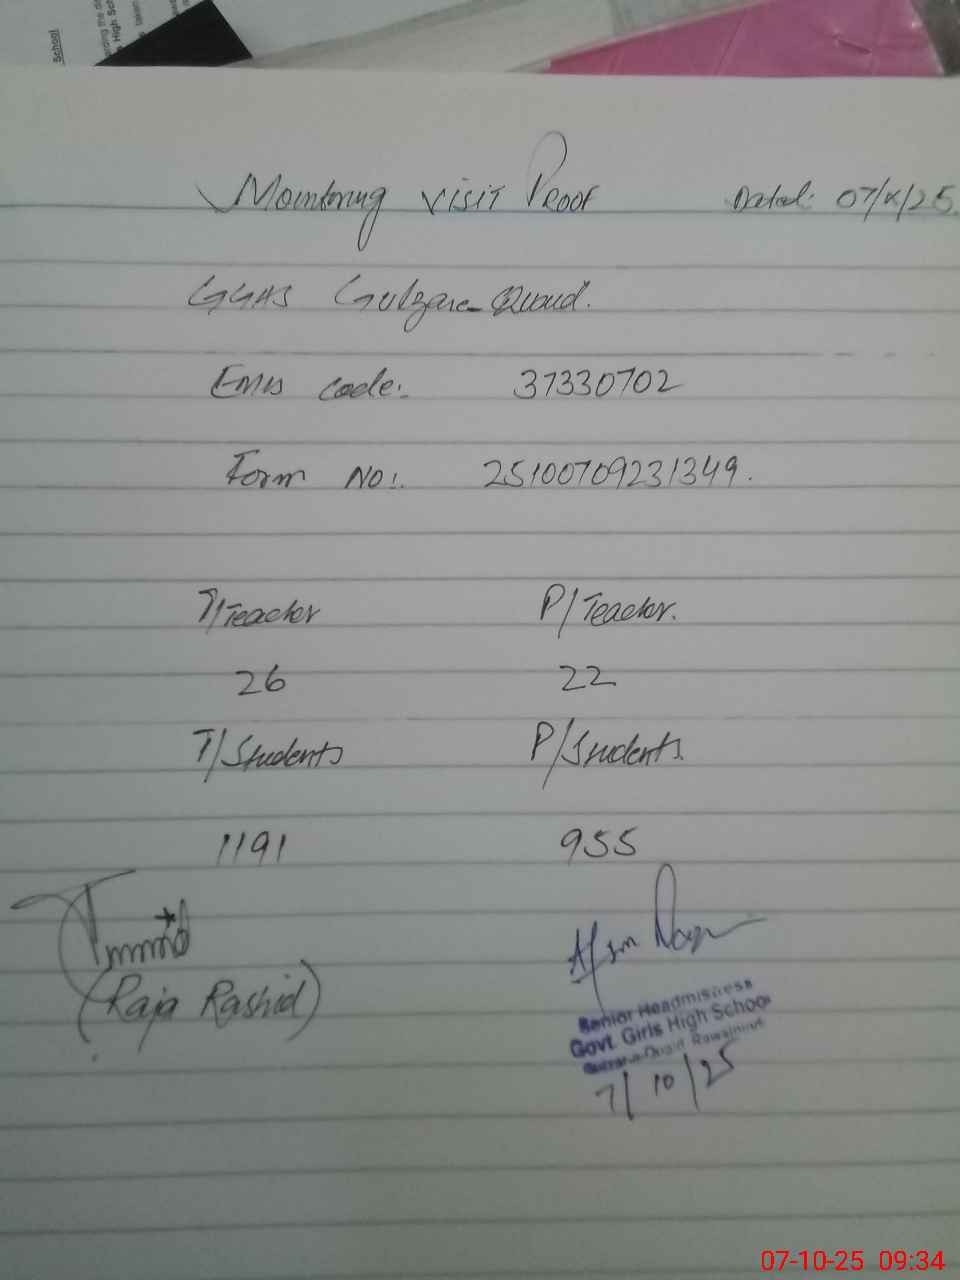 School
High Sc
Monitoring visit Proof Dated: 07/X/25.
GGHS Gulzare-Quaid.
Emis code:- 37330702
Form No:. 25100709231349.
T/Teacher P/Teacher.
26 22
T/Students P/Students.
1191 955
(Raja Rashid)
Senior Headmistress
Govt. Girls High School
Gulzare-Quaid Rawalpindi
7/10/25
07-10-25 09:34